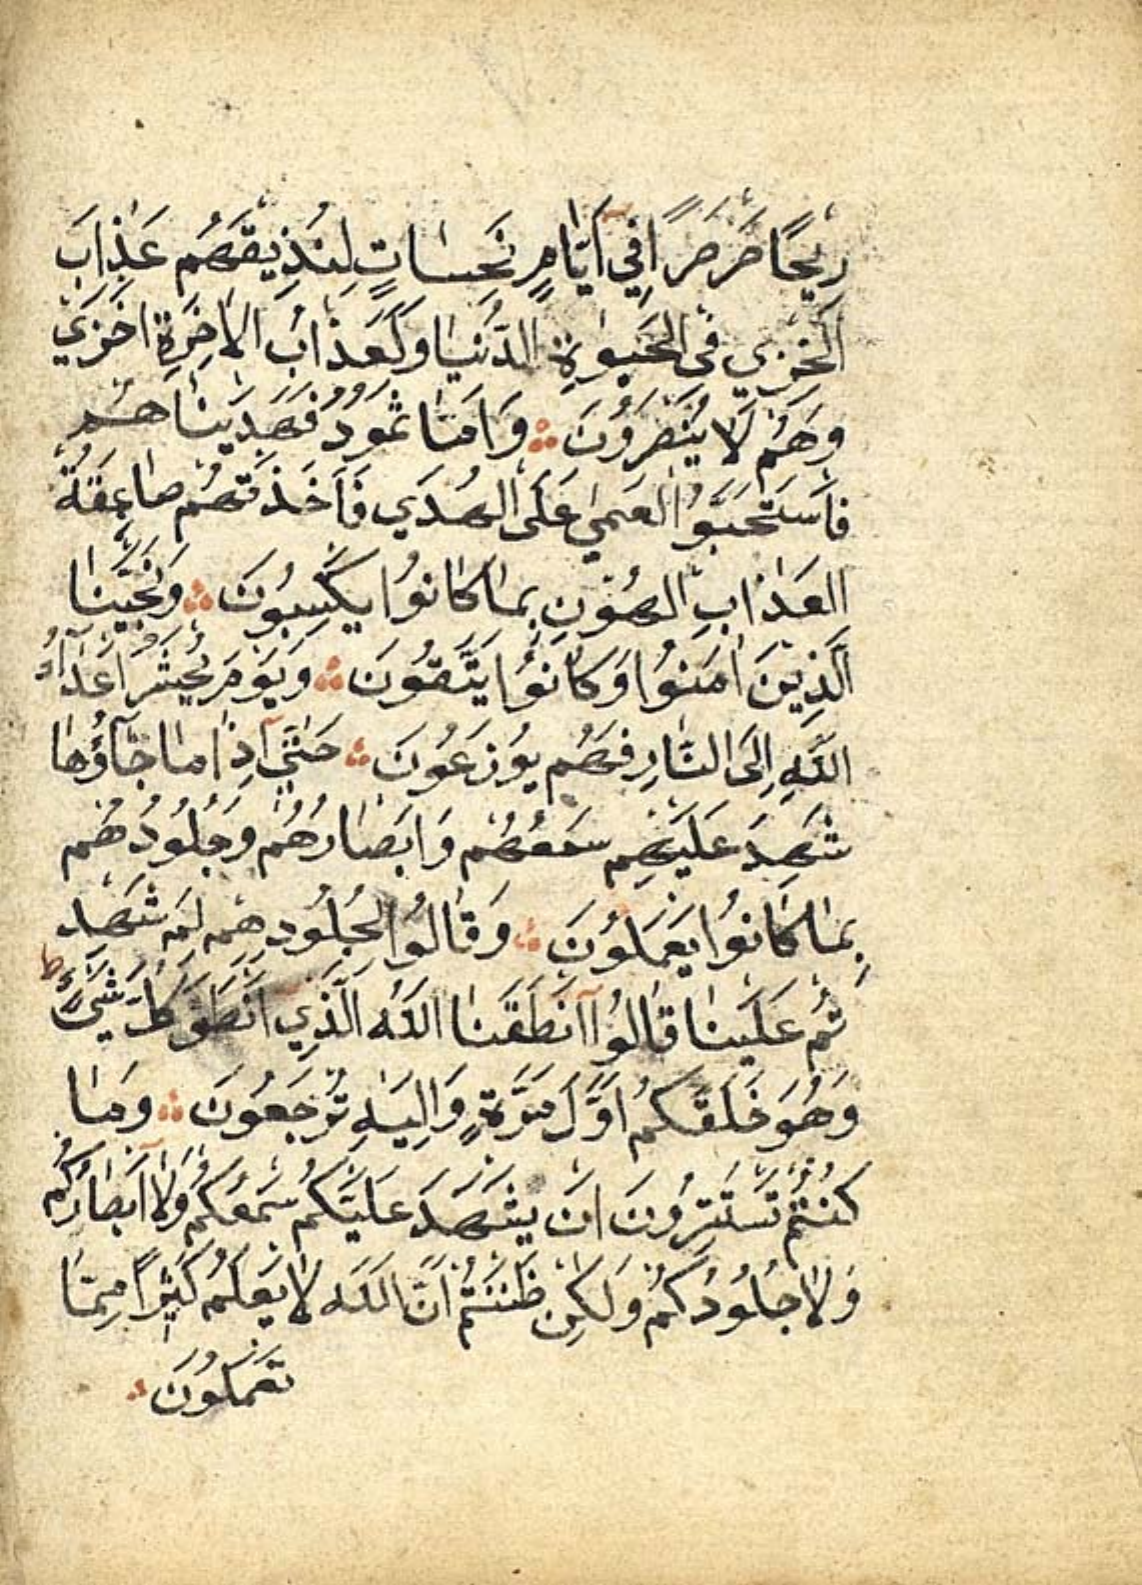 رِيحًا صَرْصَرًا فِي أَيَّامٍ نَحِسَاتٍ لِنُذِيقَهُمْ عَذَابَ
الْخِزْيِ فِي الْحَيٰوةِ الدُّنْيَا وَلَعَذَابُ الْاٰخِرَةِ اَخْزَي
وَهُمْ لَا يُنْصَرُونَ ۞ وَاَمَّا ثَمُودُ فَهَدَيْنَاهُمْ
فَاسْتَحَبُّوا الْعَمٰي عَلَى الْهُدَي فَاَخَذَتْهُمْ صَاعِقَةُ
الْعَذَابِ الْهُونِ بِمَا كَانُوا يَكْسِبُونَ ۞ وَنَجَّيْنَا
الَّذِينَ اٰمَنُوا وَكَانُوا يَتَّقُونَ ۞ وَيَوْمَ يُحْشَرُ اَعْدَآءُ
اللّٰهِ اِلَى النَّارِ فَهُمْ يُوزَعُونَ ۞ حَتّٰي اِذَا مَا جَآؤُهَا
شَهِدَ عَلَيْهِمْ سَمْعُهُمْ وَاَبْصَارُهُمْ وَجُلُودُهُمْ
بِمَا كَانُوا يَعْمَلُونَ ۞ وَقَالُوا لِجُلُودِهِمْ لِمَ شَهِدْ
تُمْ عَلَيْنَا قَالُوا اَنْطَقَنَا اللّٰهُ الَّذِي اَنْطَقَ كُلَّ شَيْءٍ ط
وَهُوَ خَلَقَكُمْ اَوَّلَ مَرَّةٍ وَاِلَيْهِ تُرْجَعُونَ ۞ وَمَا
كُنْتُمْ تَسْتَتِرُونَ اَنْ يَشْهَدَ عَلَيْكُمْ سَمْعُكُمْ وَلَا اَبْصَارُكُمْ
وَلَا جُلُودُكُمْ وَلٰكِنْ ظَنَنْتُمْ اَنَّ اللّٰهَ لَا يَعْلَمُ كَثِيرًا مِمَّا
تَعْمَلُونَ ۞